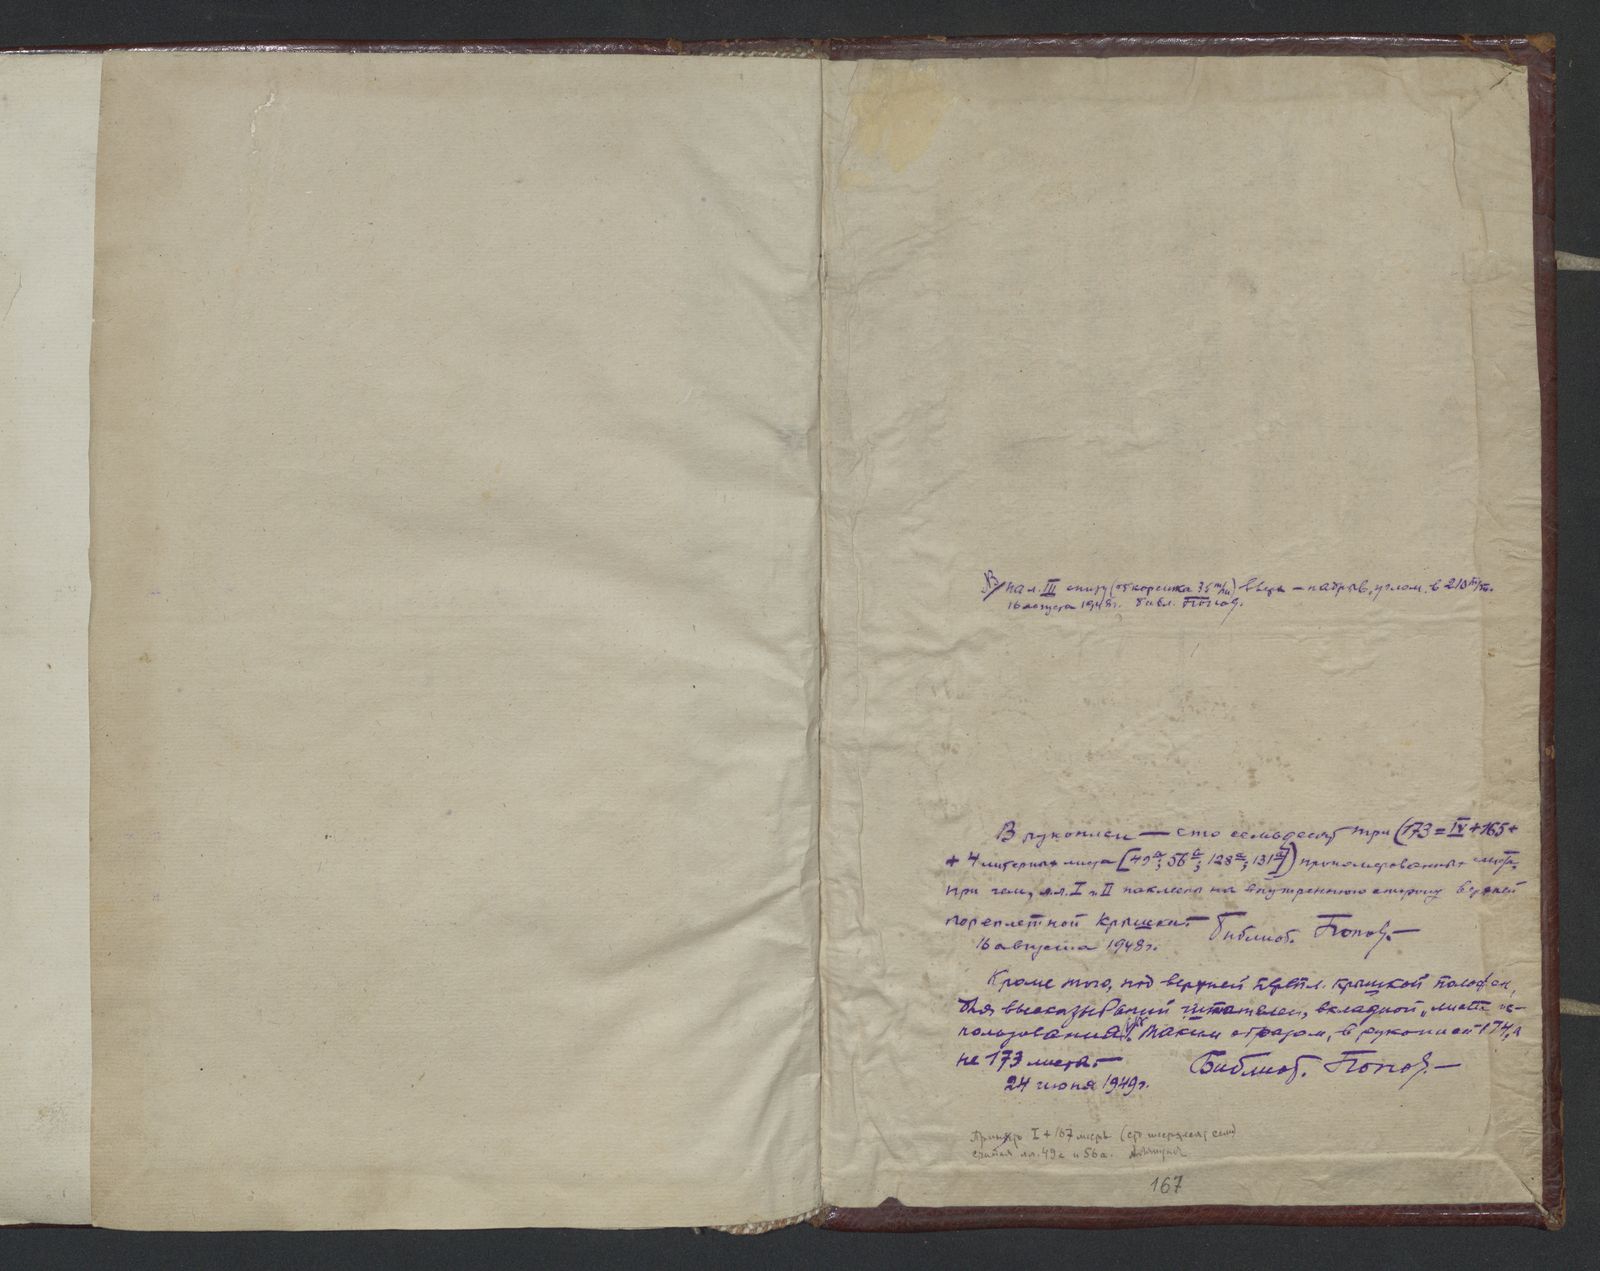 На л. III снизу (от корешка 35 m/m) вверх — надрыв, углом, в 210 m/m.
16 августа 1948 г. библ. Попов.
В рукописи — сто семьдесят три (173 = IV + 165 +
+ 4 литерных листа [49а; 56а; 128а; 131а]) пронумерованных листа,
при чем, л.л. I и II наклеены на внутреннюю сторону верхней
переплетной крышки.—
16 августа 1948 г. Библиот. Попов.—
Кроме того, под верхней перепл. крышкой положен,
для высказываний читателей, вкладной „лист ис-
пользования". Таким образом, в рукописи 174, а
не 173 листа.—
24 июня 1949 г. Библиот. Попов.—
I + 167 листов (сто шестьдесят семь)
считая лл. 49а и 56а.
167